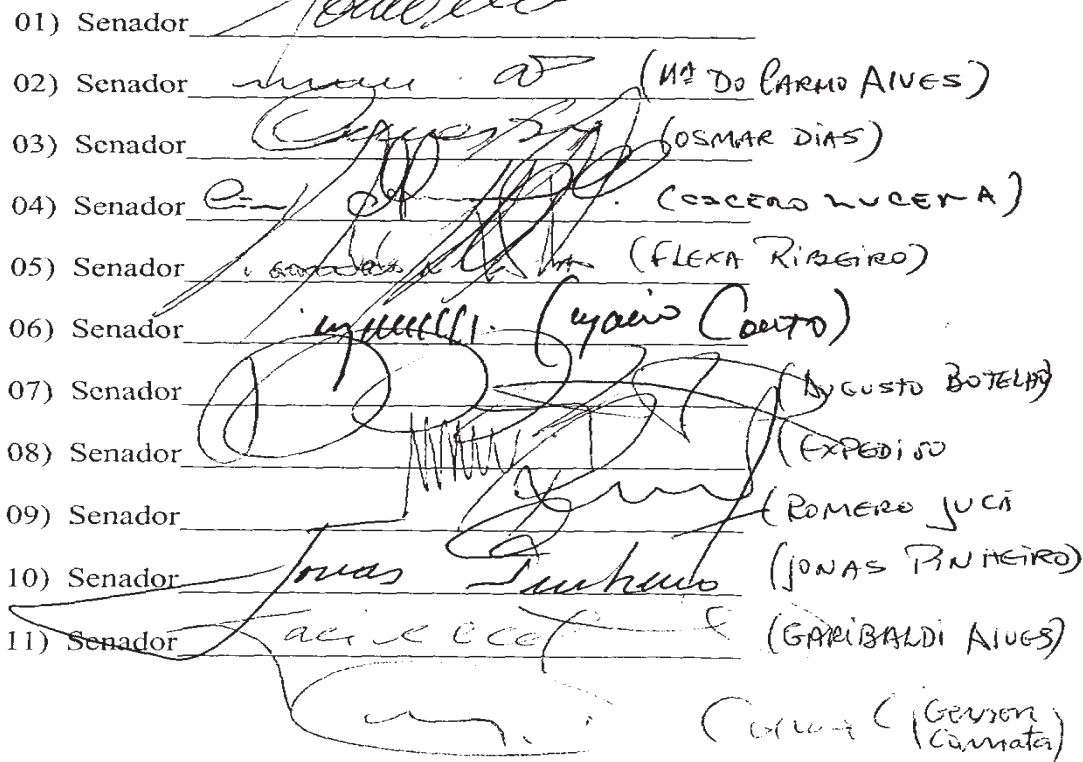 01) Senador
02) Senador (Mª DO CARMO ALVES)
03) Senador (OSMAR DIAS)
04) Senador (CICERO LUCENA)
05) Senador (FLEXA RIBEIRO)
06) Senador (Mario Couto)
07) Senador (AUGUSTO BOTELHO)
08) Senador (EXPEDITO
09) Senador (ROMERO JUCÁ
10) Senador Jonas Pinheiro (JONAS PINHEIRO)
11) Senador (GARIBALDI ALVES)
(Gerson
Camata)